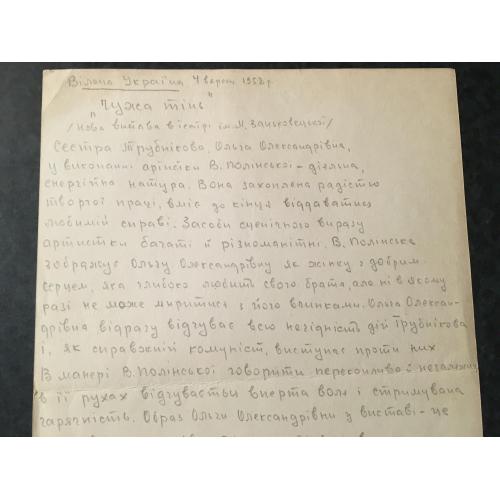 Вільна Україна 4 вересн 1952 р
"Чужа тінь"
/Нова вистава в театрі ім. М. Заньковецької/
Сестра Трубнікова, Ольга Олександрівна,
у виконанні артистки В. Полінської - діяльна,
енергійна натура. Вона захоплена радістю
творчої праці, вміє до кінця віддаватись
любимій справі. Засоби сценічного виразу
артистки багаті й різноманітні. В. Полінська
зображує Ольгу Олександрівну як жінку з добрим
серцем, яка глибоко любить свого брата, але ні в якому
разі не може миритися з його вчинками. Ольга Олексан-
дрівна відразу відчуває всю негідність дій Трубнікова
і, як справжній комуніст, виступає проти них
В манері В. Полінської говорити переконливо і незалежно,
в її рухах відчувається вперта воля і стримувана
гарячність. Образ Ольги Олександрівни у виставі - це